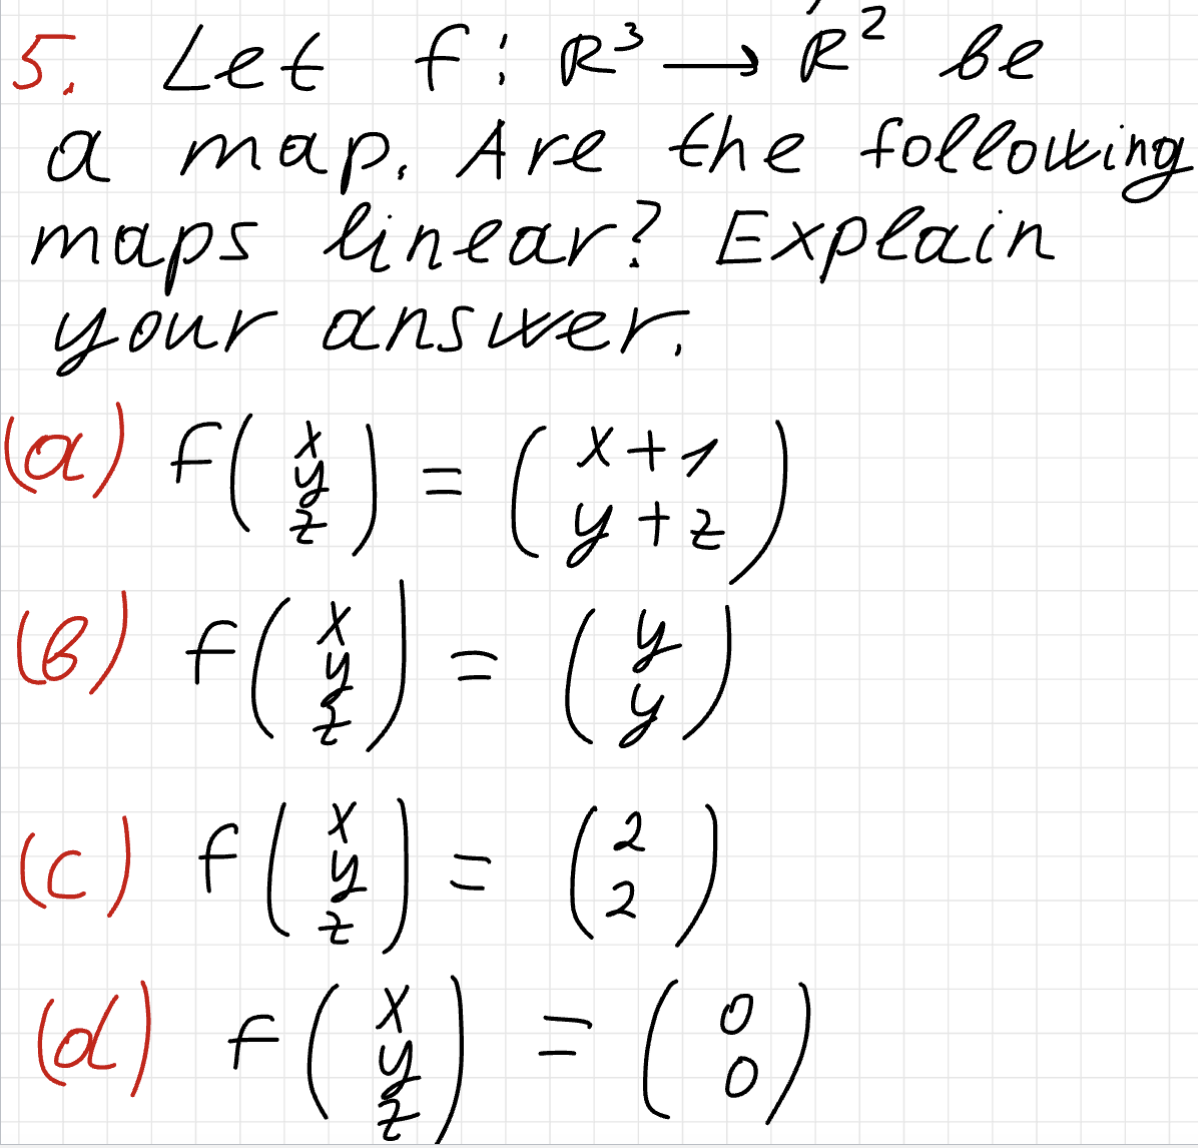 5. Let f: R³ → R² be
a map. Are the following
maps linear? Explain
your answer.
(a) f(x y z) = (x+1 y+z)
(b) f(x y z) = (y y)
(c) f(x y z) = (2 2)
(d) f(x y z) = (0 0)